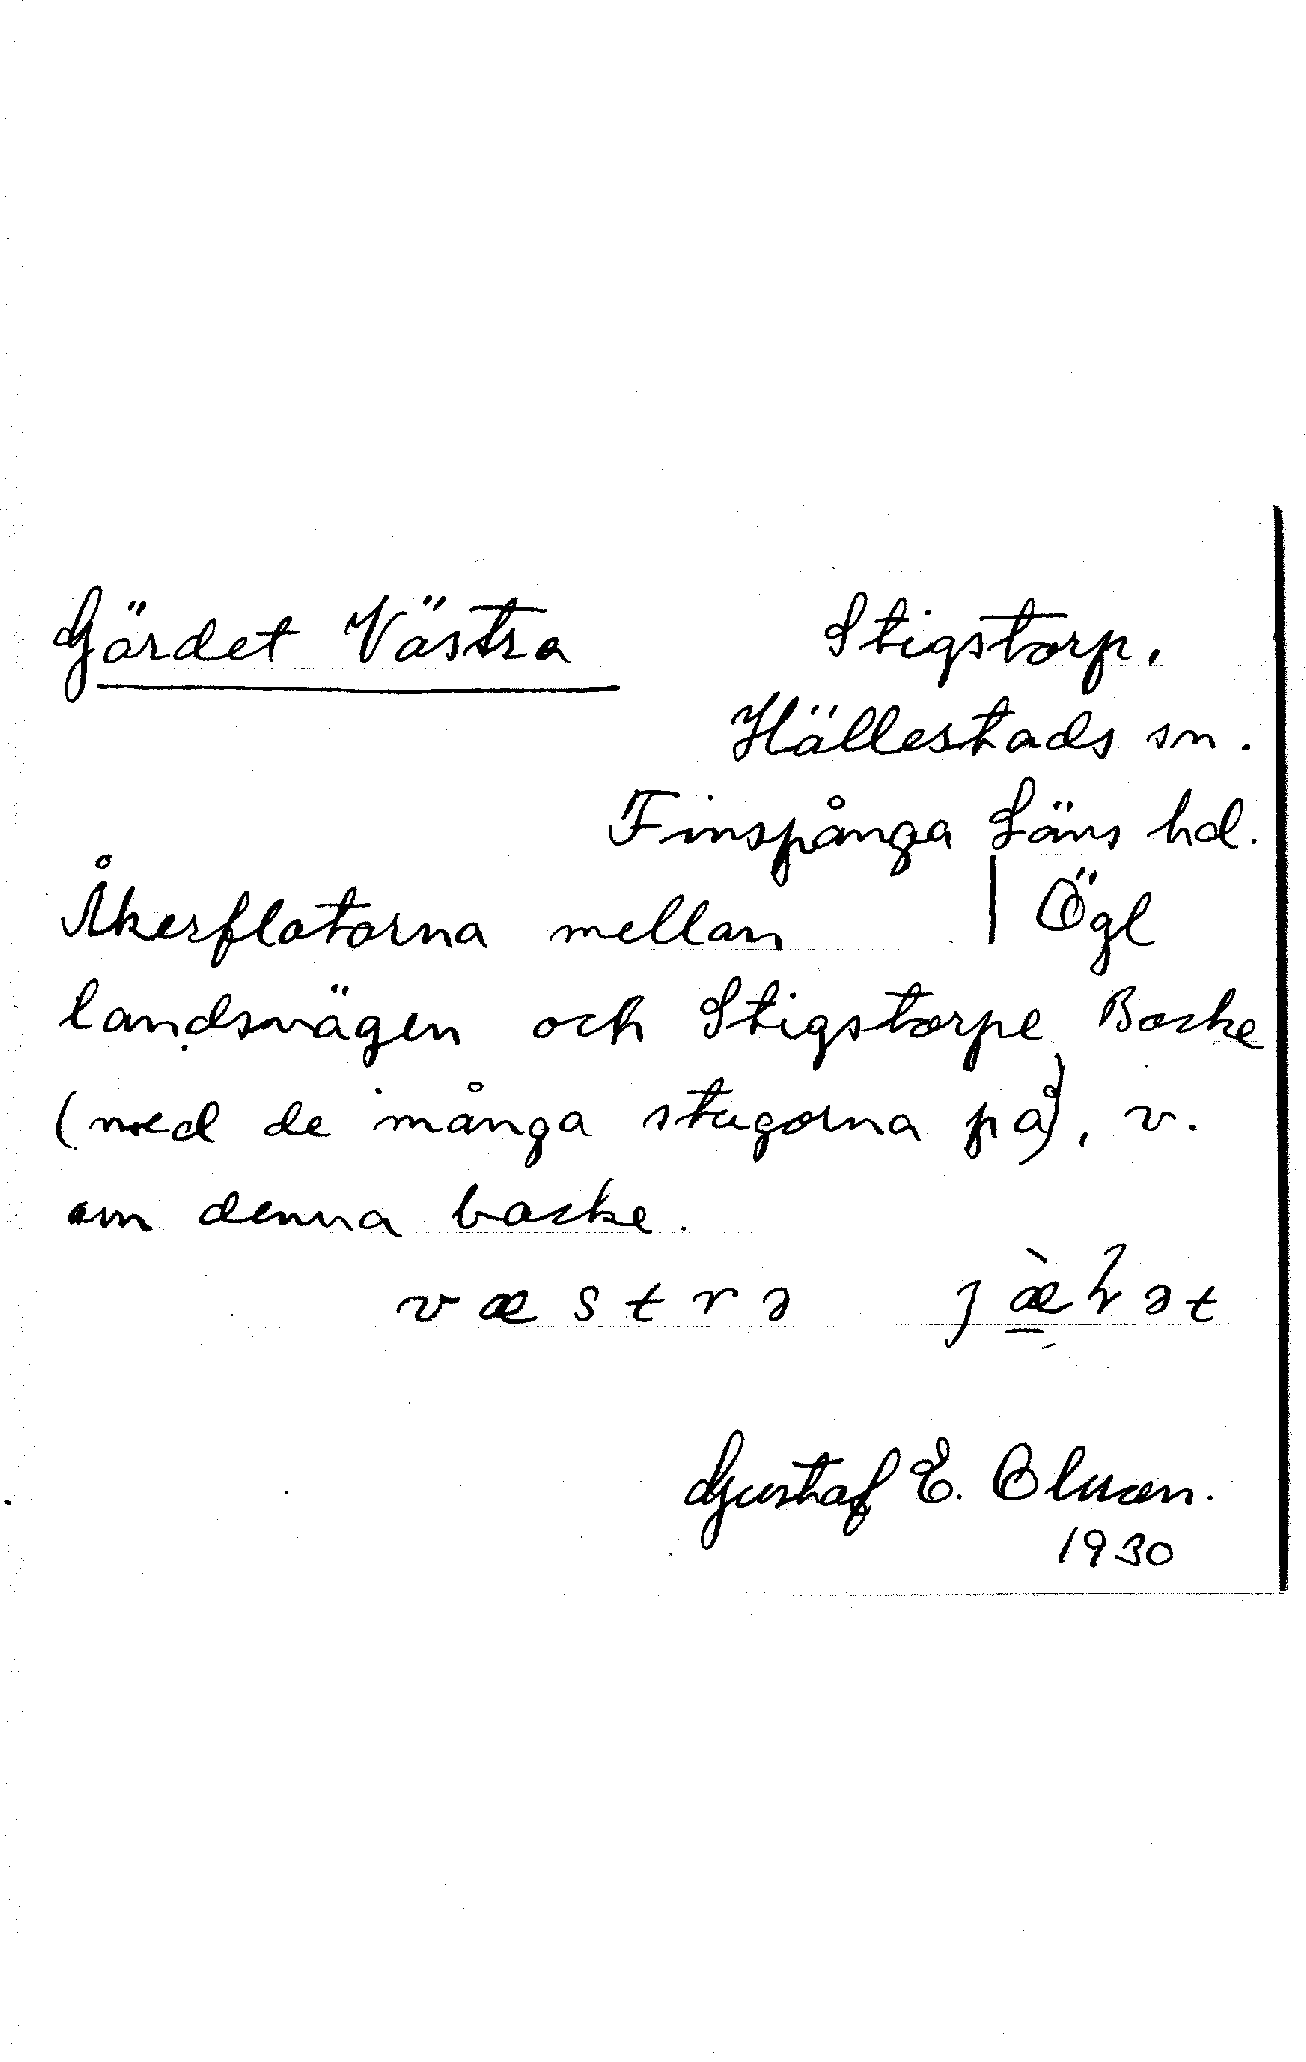 Gärdet Västra
Stigstorp.
Hällestads sn.
Finspånga Läns hd.
Ögl
Åkerflatorna mellan
landsvägen och Stigstorpe Backe
(med de många stugorna på), v.
om denna backe.
væstrə
Gustaf E.
1930